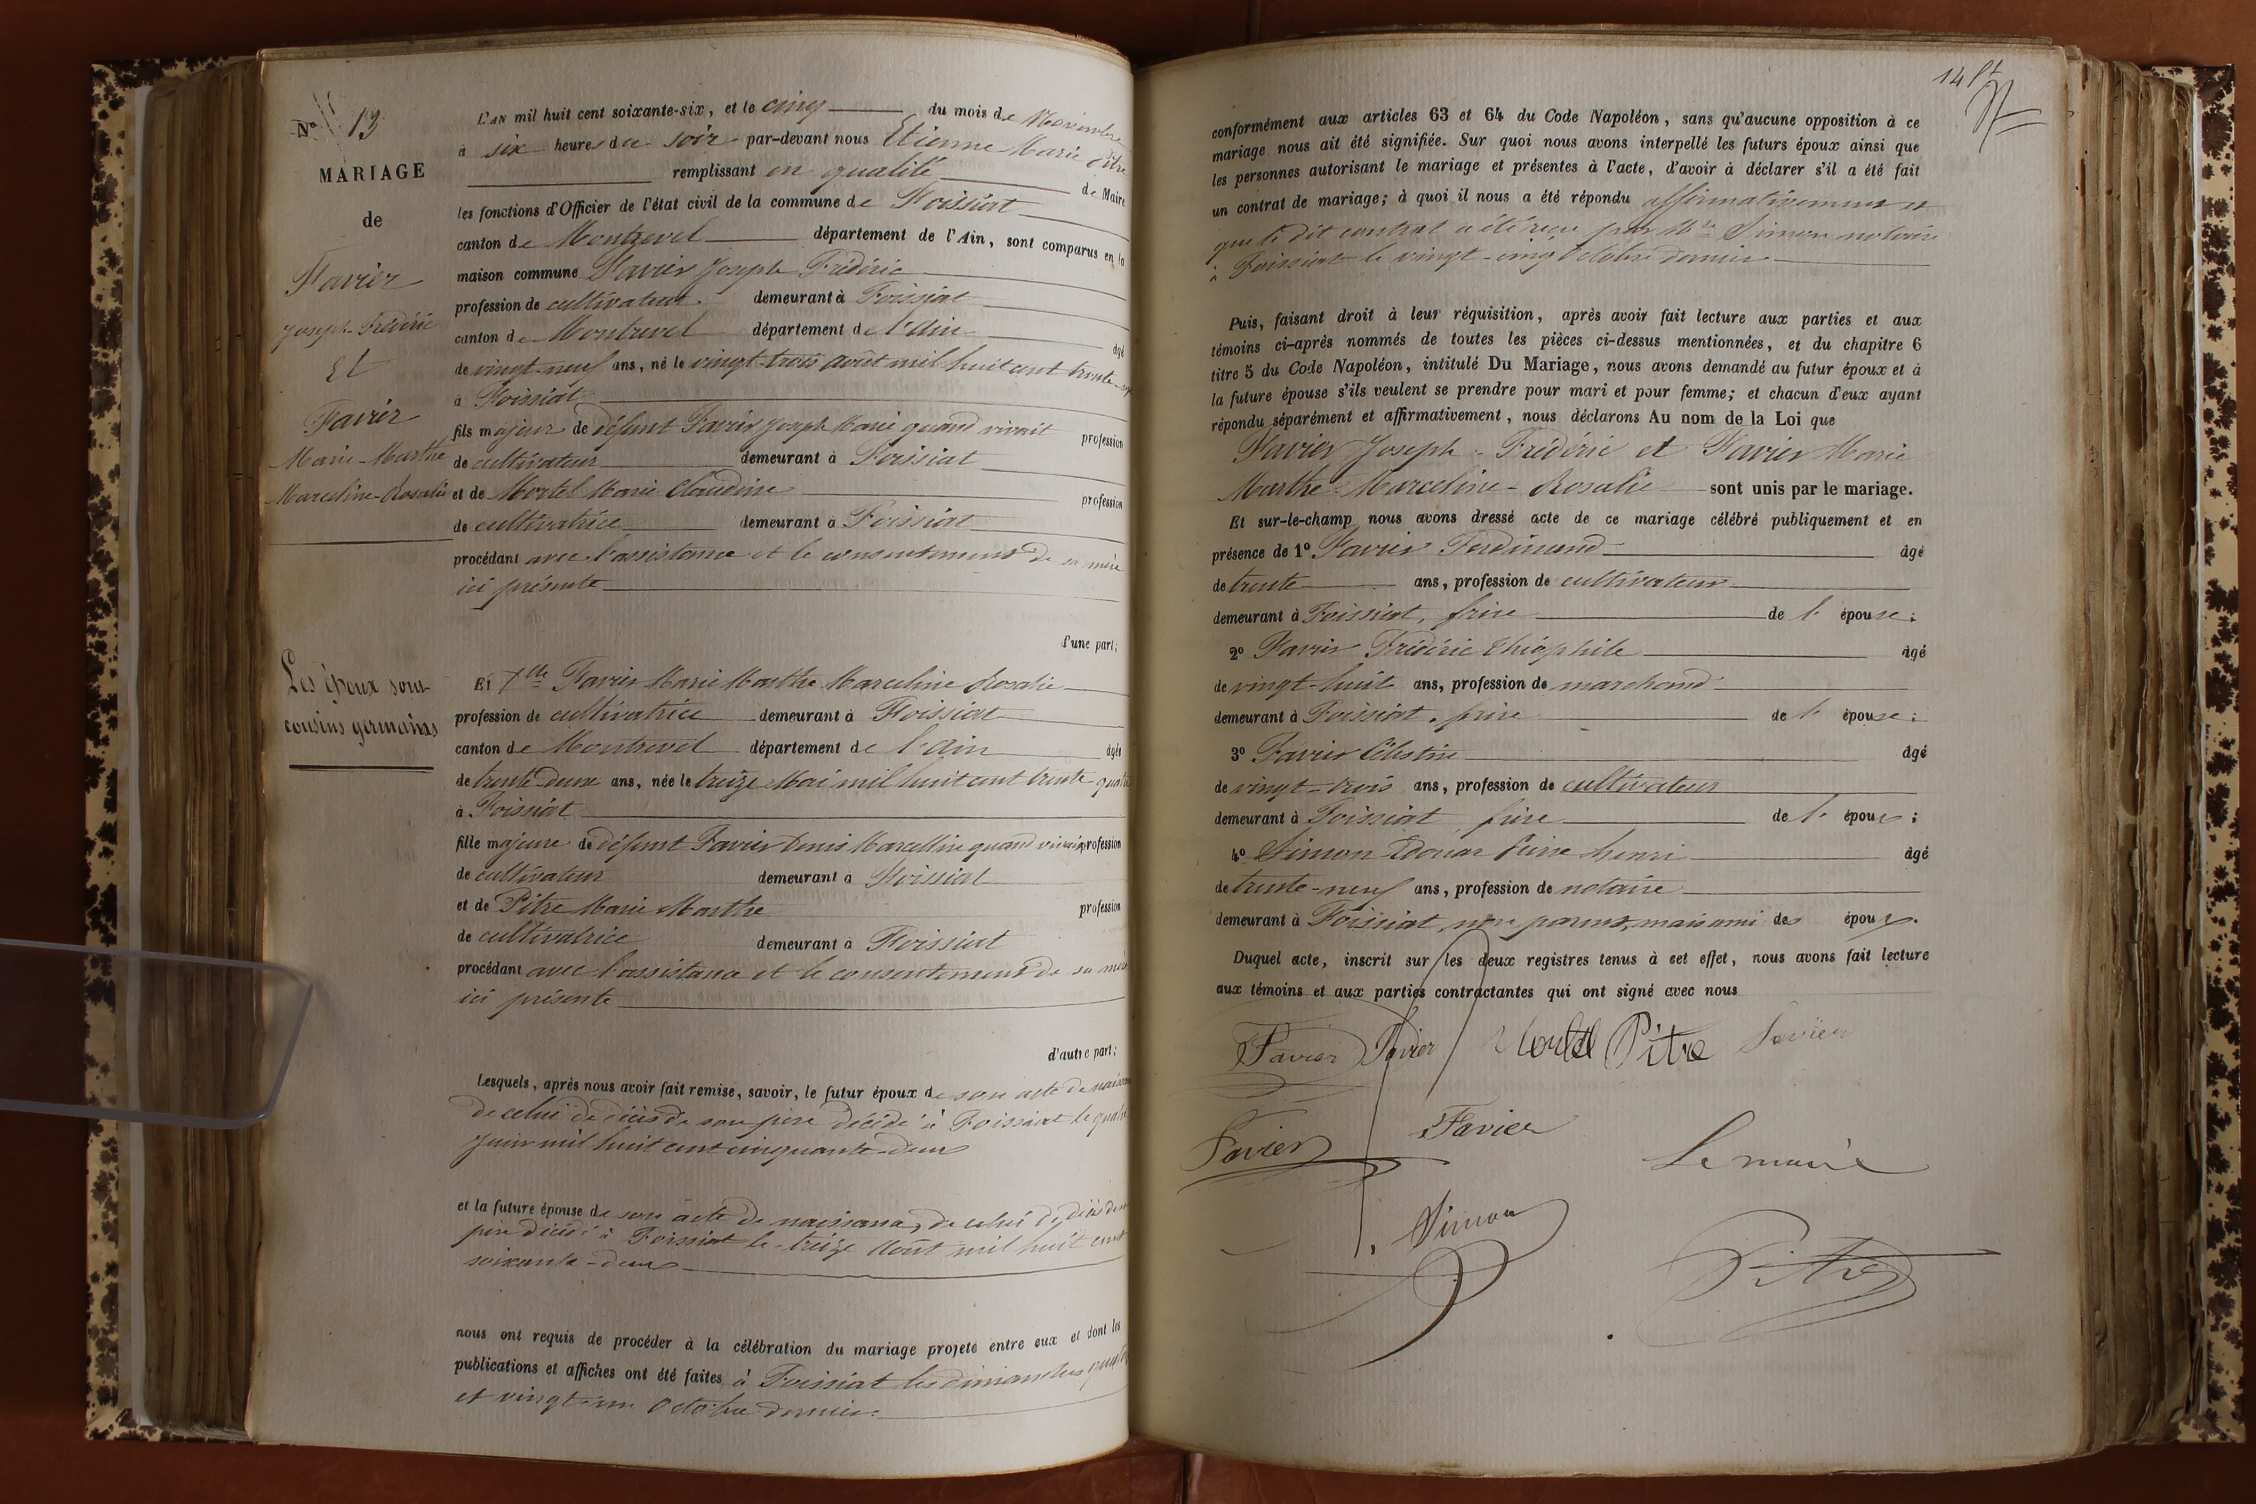 N° 13
MARIAGE
de
Favier
Joseph-Frédéric
Et
Favier
Marie-Marthe
Marceline-Rosalie
Les époux sont
cousins germains
L'AN mil huit cent soixante-six, et le cinq du mois de Novembre
à six heures du soir par-devant nous Etienne Marie Pitre
remplissant en qualité de Maire
les fonctions d'Officier de l'état civil de la commune de Foissiat
canton de Montrevel département de l'Ain, sont comparus en la
maison commune Favier Joseph Frédéric
profession de cultivateur demeurant à Foissiat
canton de Montrevel département de l'Ain âgé
de vingt-neuf ans, né le vingt-trois août mil huit cent trente-sept
à Foissiat
fils majeur de défunt Favier Joseph Marie quand vivait profession
de cultivateur demeurant à Foissiat
et de Mortel Marie Claudine profession
de cultivatrice demeurant à Foissiat
procédant avec l'assistance et le consentement de sa mère
ici présente
d'une part;
Et Dlle Favier Marie Marthe Marceline Rosalie
profession de cultivatrice demeurant à Foissiat
canton de Montrevel département de l'Ain âgée
de trente-deux ans, née le treize Mai mil huit cent trente quatre
à Foissiat
fille majeure de défunt Favier Denis Marcellin quand vivait profession
de cultivateur demeurant à Foissiat
et de Pitre Marie Marthe profession
de cultivatrice demeurant à Foissiat
procédant avec l'assistance et le consentement de sa mère
ici présente
d'autre part;
Lesquels, après nous avoir fait remise, savoir, le futur époux de son acte de naissance
de celui de décès de son père décédé à Foissiat le quatre
Juin mil huit cent cinquante-deux
et la future épouse de son acte de naissance, de celui de décès de son
père décédé à Foissiat le treize Août mil huit cent
soixante-deux
nous ont requis de procéder à la célébration du mariage projeté entre eux et dont les
publications et affiches ont été faites à Foissiat les dimanches quatorze
et vingt-un Octobre dernier.
conformément aux articles 63 et 64 du Code Napoléon, sans qu'aucune opposition à ce
mariage nous ait été signifiée. Sur quoi nous avons interpellé les futurs époux ainsi que
les personnes autorisant le mariage et présentes à l'acte, d'avoir à déclarer s'il a été fait
un contrat de mariage; à quoi il nous a été répondu affirmativement et
que le dit contrat a été reçu par Me Simon notaire
à Foissiat le vingt-cinq Octobre dernier
Puis, faisant droit à leur réquisition, après avoir fait lecture aux parties et aux
témoins ci-après nommés de toutes les pièces ci-dessus mentionnées, et du chapitre 6
titre 5 du Code Napoléon, intitulé Du Mariage, nous avons demandé au futur époux et à
la future épouse s'ils veulent se prendre pour mari et pour femme; et chacun d'eux ayant
répondu séparément et affirmativement, nous déclarons Au nom de la Loi que
Favier Joseph-Frédéric et Favier Marie
Marthe-Marceline-Rosalie sont unis par le mariage.
Et sur-le-champ nous avons dressé acte de ce mariage célébré publiquement et en
présence de 1° Favier Ferdinand âgé
de trente ans, profession de cultivateur
demeurant à Foissiat, frère de l'épouse;
2° Favier Frédéric Théophile âgé
de vingt-huit ans, profession de marchand
demeurant à Foissiat, frère de l'épouse;
3° Favier Célestin âgé
de vingt-trois ans, profession de cultivateur
demeurant à Foissiat frère de l'époux;
4° Simon Edouar Pierre henri âgé
de trente-neuf ans, profession de notaire
demeurant à Foissiat, non parent, mais ami des époux.
Duquel acte, inscrit sur les deux registres tenus à cet effet, nous avons fait lecture
aux témoins et aux parties contractantes qui ont signé avec nous
Favier Favier Mortel Pitre Favier
Favier Favier
Le maire
Simon
Pitre